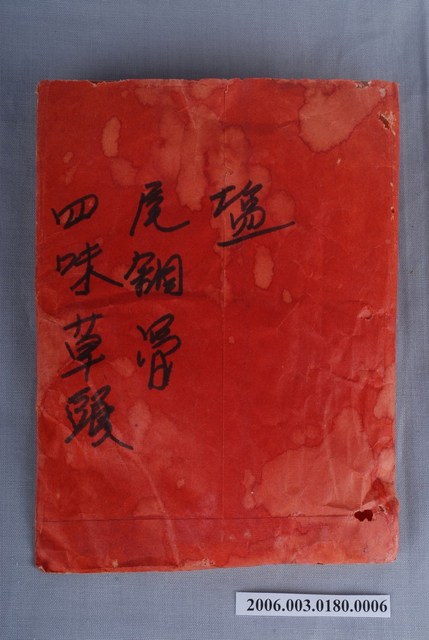 塩
尾銅骨
四味草頭
2006.003.0180.0006